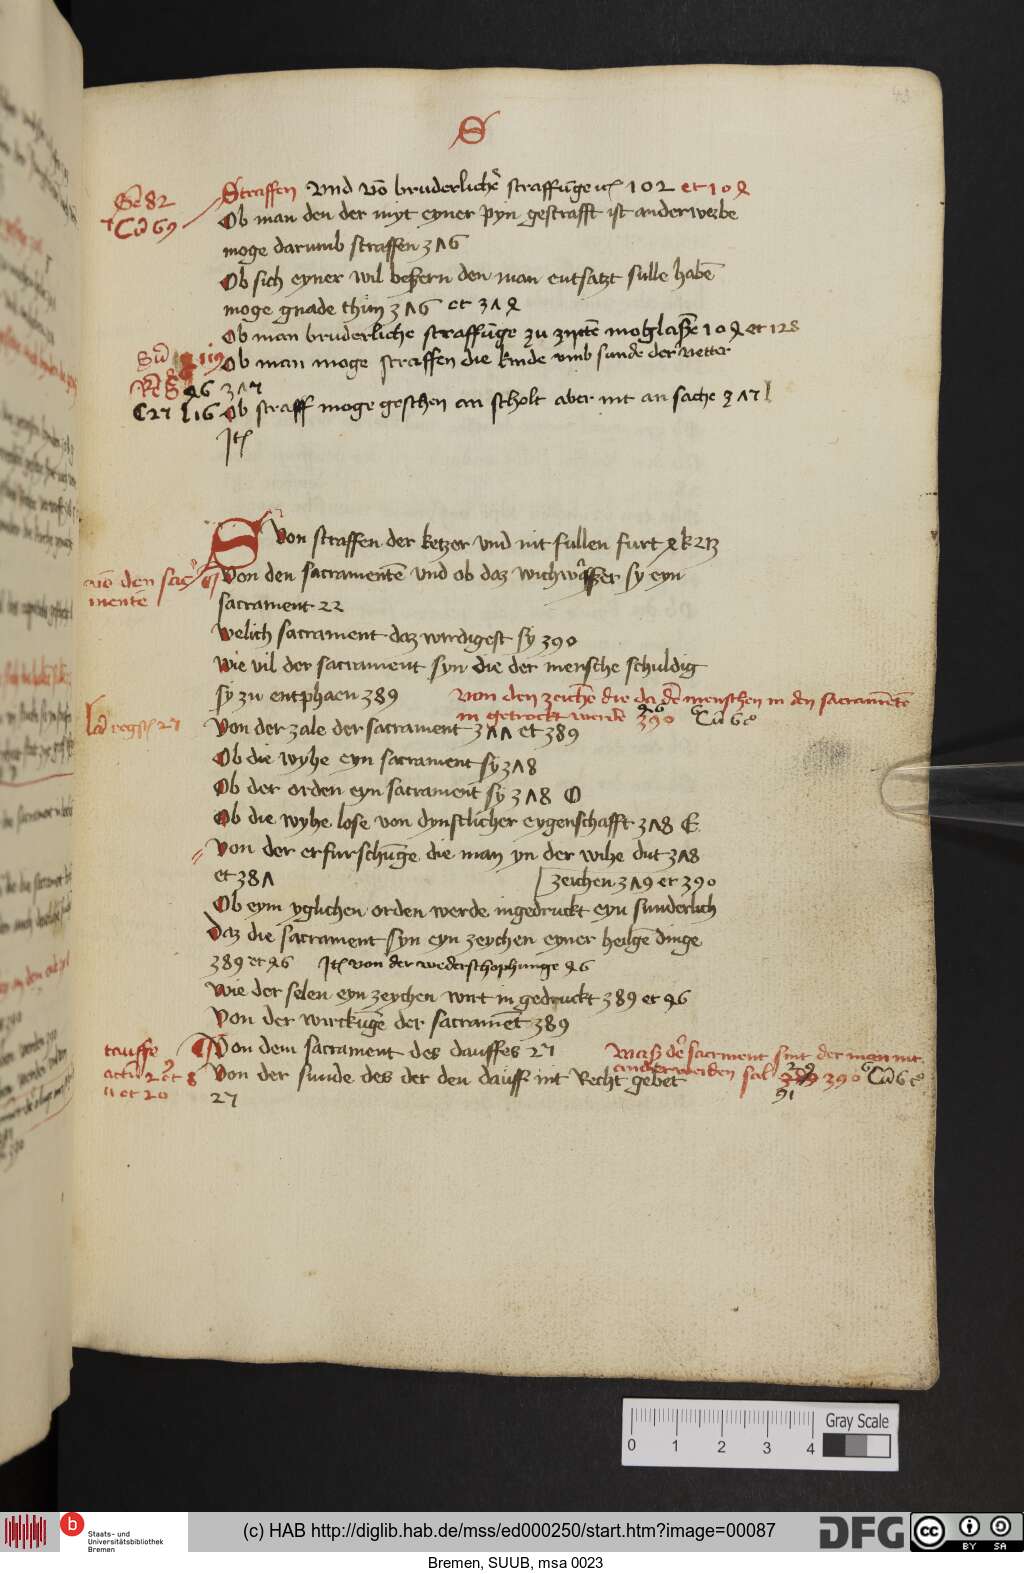 S
Straffen Vnd võ bruderlichẽ straffũge 102 et 10
Ob man den der myt eyner pyn gestrafft ist anderwerbe
moge darumb straffen 3Λ6
Ob sich eyner wil beßern den man entsatzt sulle habẽ
moge gnade thun 3Λ6 et 3Λ
Ob man bruderliche straffũge zu zytẽ 10 et 128
Ob man moge straffen die kinde vmb sunde der vetter
3Λ7
Ob straff moge geschen an scholt aber nit an sache 3Λ7
Jt
Von straffen der ketzer vnd nit fullen furt
võ den sac
mentẽ
Von den sacramentẽ vnd ob daz wichwaßer sy eyn
sacrament 22
Welich sacrament daz wirdigest sy 390
Wie vil der sacrament syn die der mensche schuldig
sy zu entphaen 389
Von den zeichẽ die da dẽ menschen in den sacramẽtẽ
in getrockt werdẽ 390
Von der zale der sacrament 3ΛΛ et 389
Ob die wyhe eyn sacrament sy 3Λ8
Ob der orden eyn sacrament sy 3Λ8 O
Ob die wyhe lose von dynstlicher eygenschafft 3Λ8 E
Von der erfurschũge die man yn der wihe dut 3Λ8
et 38Λ
zeichen 3Λ9 et 390
Ob eym yglichen orden werde ingedruckt eyn sunderlich
Daz die sacrament syn eyn zeychen eyner heilgẽ dinge
389 et 96 Jt von der wederschophunge 96
Wie der selen eyn zeychen wirt in gedruckt 389 et 96
Von der wirckũge der sacramẽt 389
tauffe
Von dem sacrament des dauffes 27
Waß der sacrment sint der man nit
anderweiden sal 390
Von der sunde des der den dauff nit Recht gebet
27
0 1 2 3 4
Gray Scale
Staats- und
Universitätsbibliothek
Bremen
(c) HAB http://diglib.hab.de/mss/ed000250/start.htm?image=00087
DFG
cc BY SA
Bremen, SUUB, msa 0023